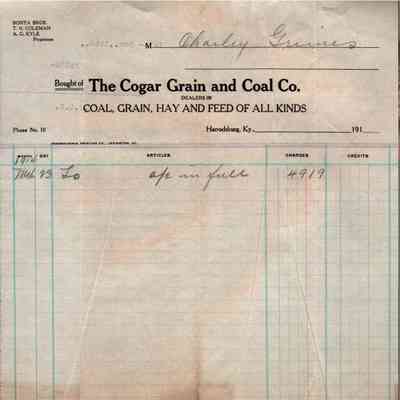 BONTA BROS.
T. H. COLEMAN
A. G. KYLE
Proprietors
M Charley Grimes
Bought of The Cogar Grain and Coal Co.
DEALERS IN
COAL, GRAIN, HAY AND FEED OF ALL KINDS
Phone No. 10 Harrodsburg, Ky., 191
MONTH DAY ARTICLES CHARGES CREDITS
Mch 23 To a/c in full 4919